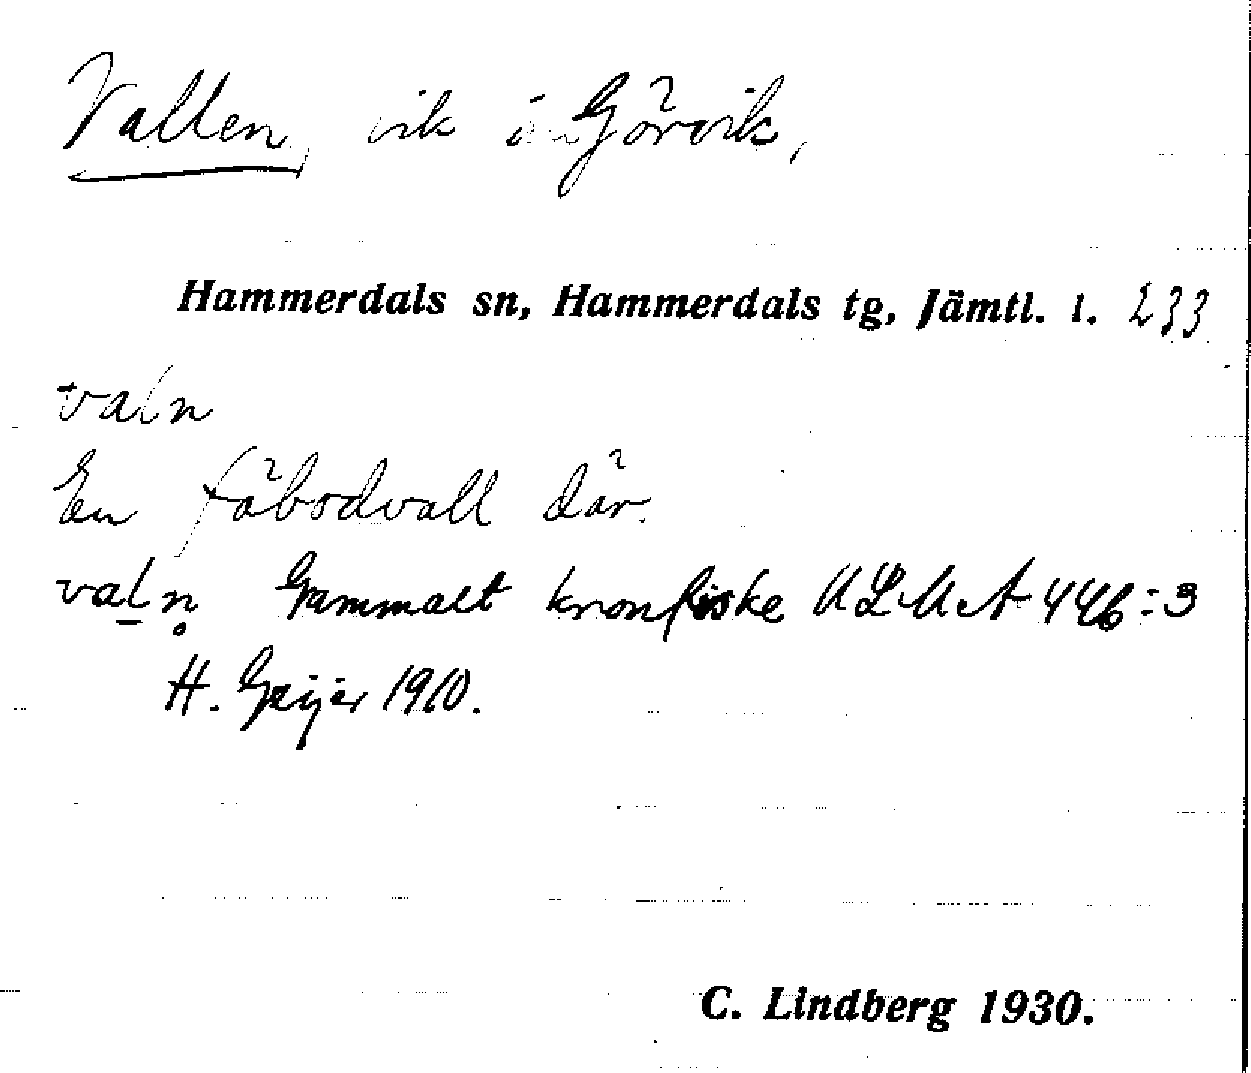 Vallen, vik i Görvik,
Hammerdals sn, Hammerdals tg, Jämtl. l. 233
valn
En fäbodvall där.
valn̥ Gammalt kronfiske ULMA 446:3
H. Geijer 1910.
C. Lindberg 1930.